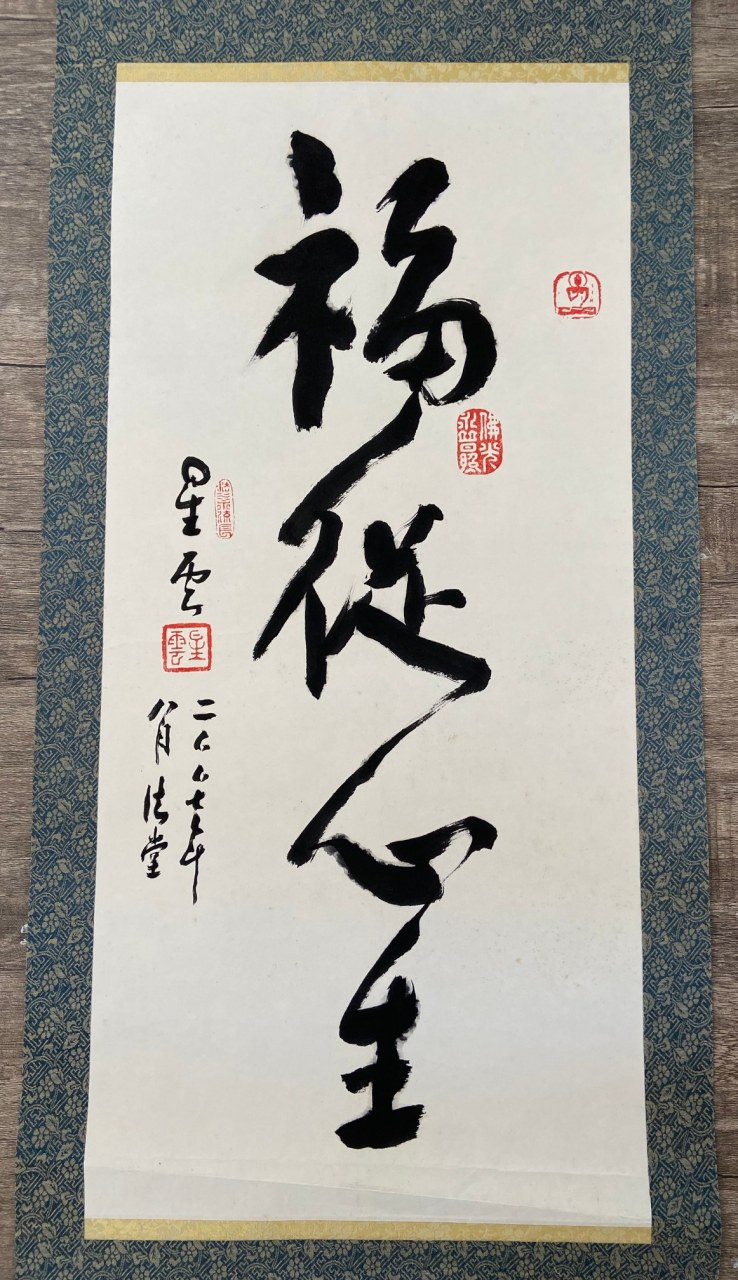 福從心生
佛光
星雲
星雲
二〇〇七年
八月法堂